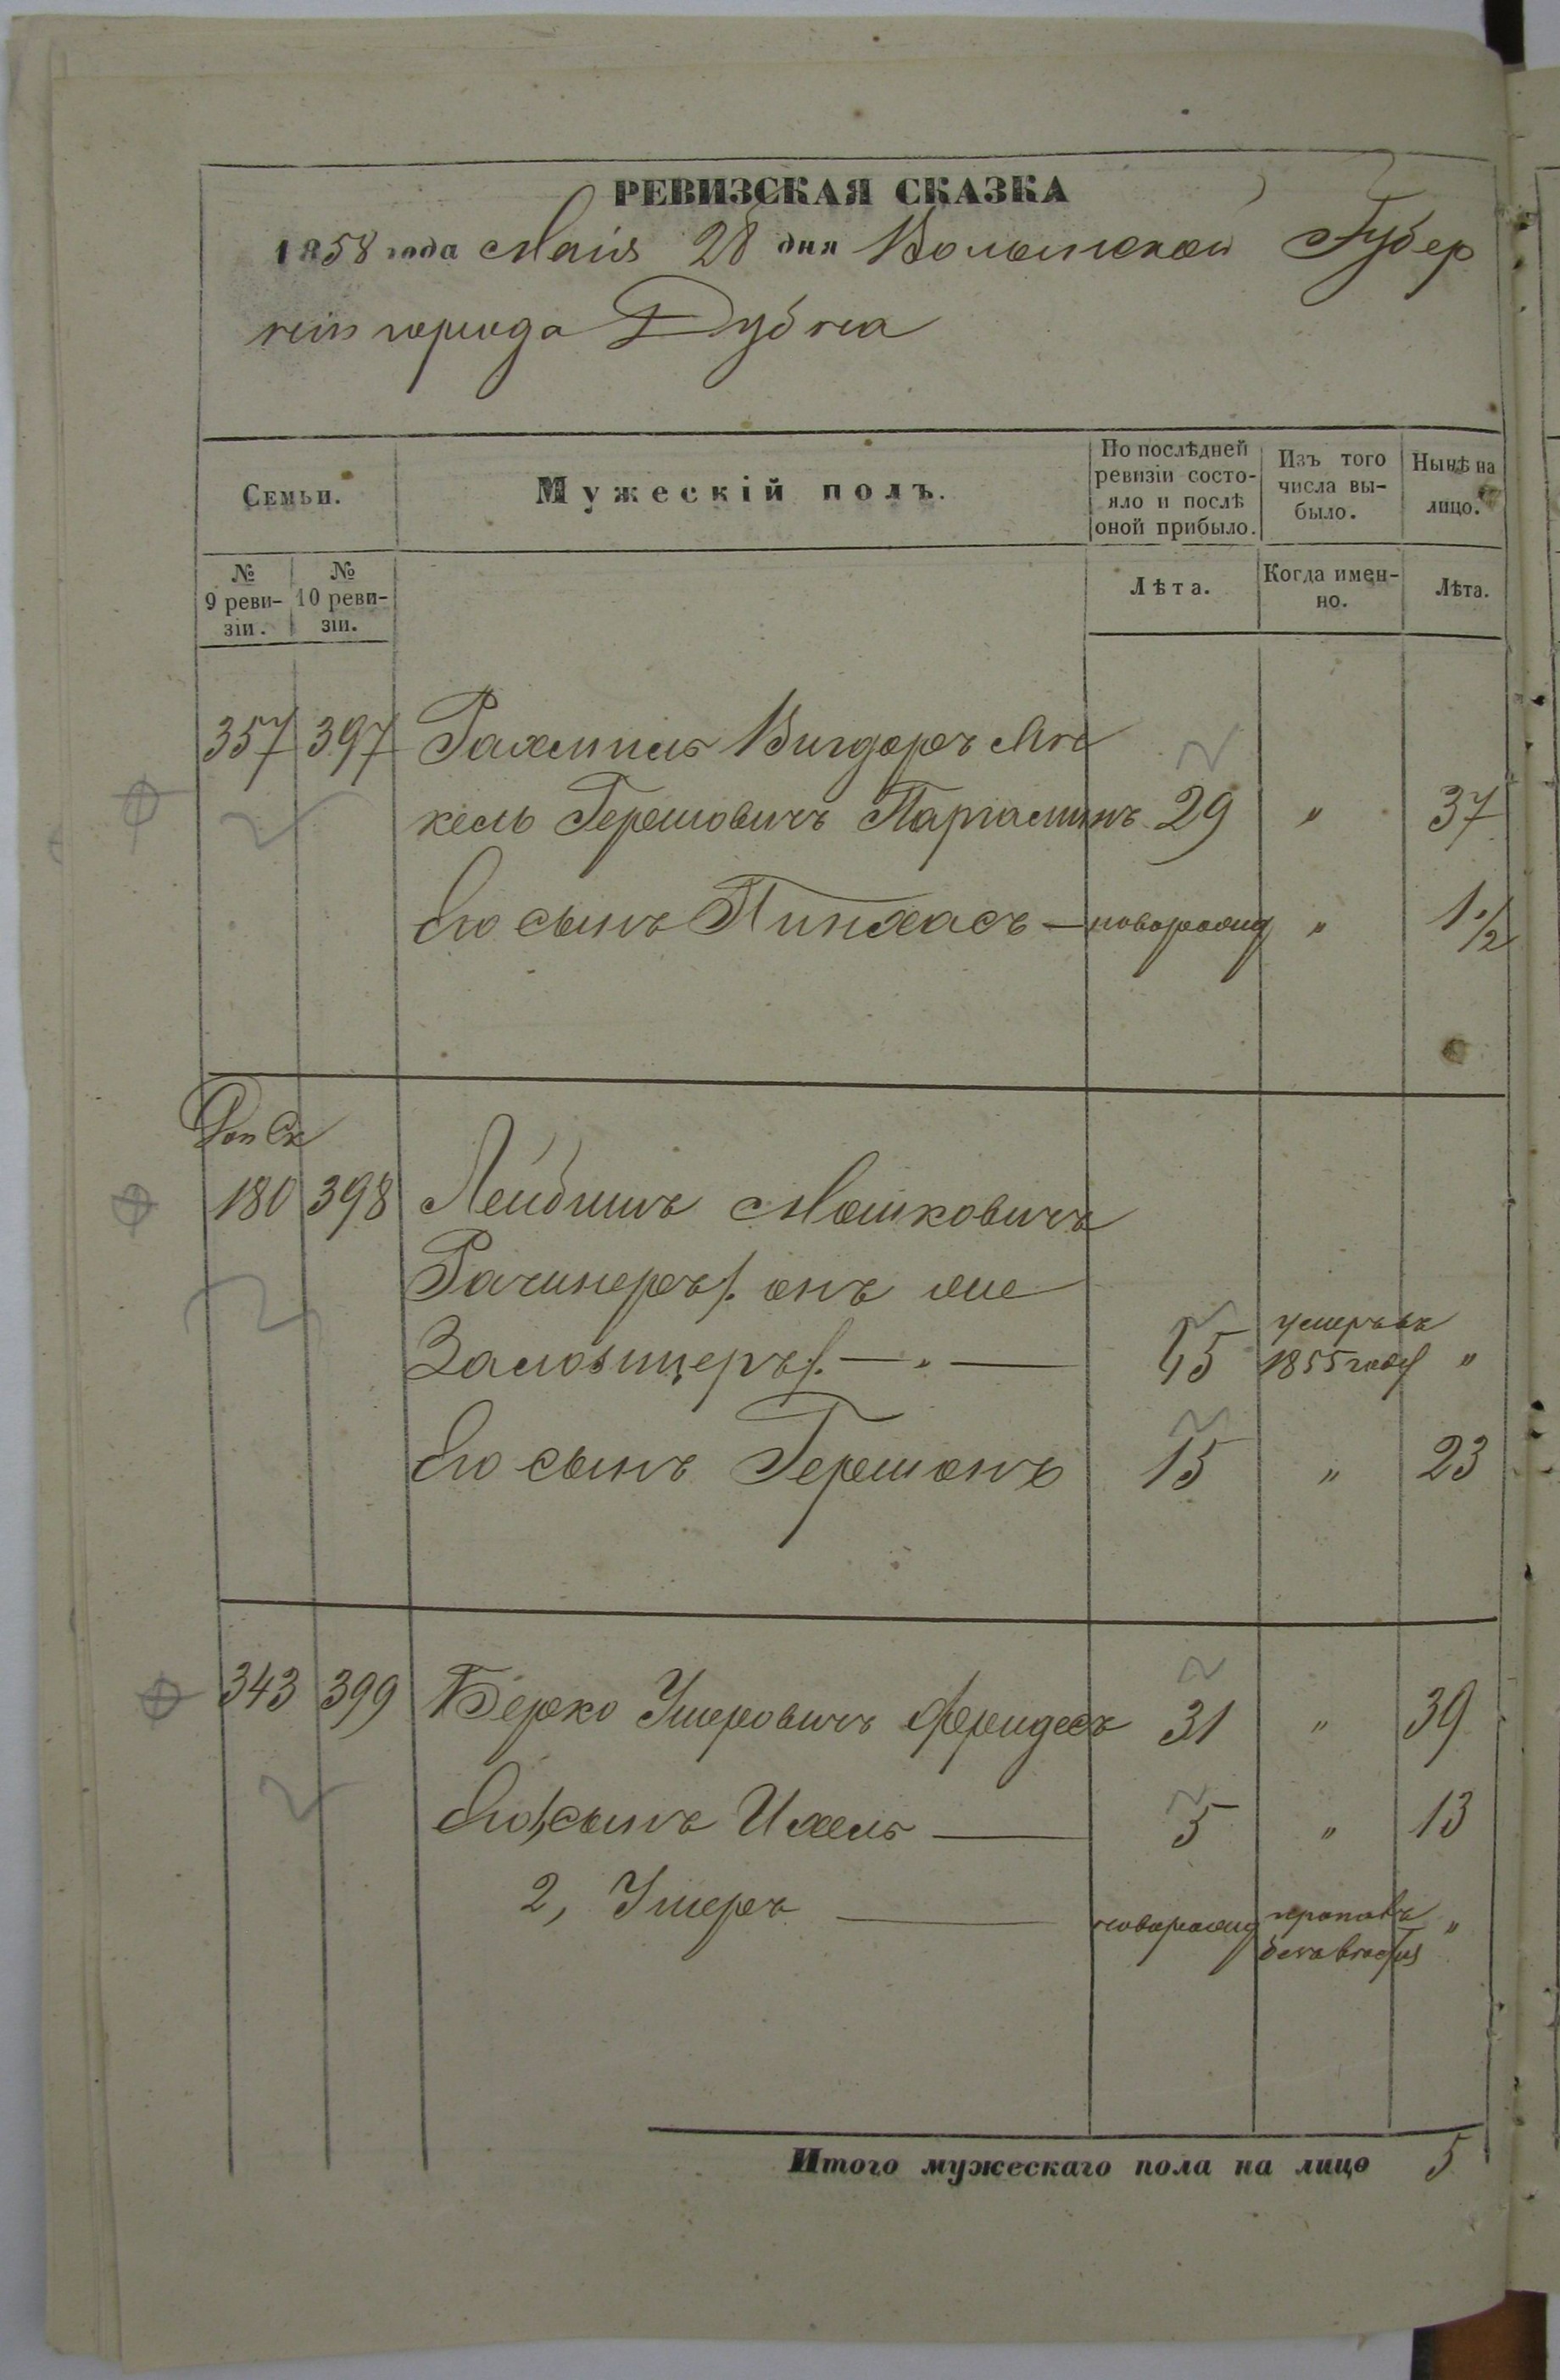 РЕВИЗСКАЯ СКАЗКА
1858 года Маія 28 дня Волынской Губер
ніи города Дубна
Семьи.
Мужескій полъ.
По послѣдней ревизіи состояло и послѣ оной прибыло.
Изъ того числа выбыло.
Нынѣ на лицо.
№ 9 ревизіи.
№ 10 ревизіи.
Лѣта.
Когда именно.
Лѣта.
357 397 Рахмиль Вигдоръ Ян
кель Гершовичъ 29 " 37
Его сынъ Пинхасъ — новорожд " 1 1/2
Доп Ск
180 398 Лейбишъ Мошковичъ
Рачинеръ /: онъ же
:/ — . — 45 умеръ въ 1855 году "
Его сынъ Гершонъ 15 " 23
343 399 Берко Ушеровичъ Фридесъ 31 " 39
Его 1, сынъ Ихель — 5 " 13
2, Ушеръ — новорожд пропалъ безъ вѣсти "
Итого мужескаго пола на лицо 5